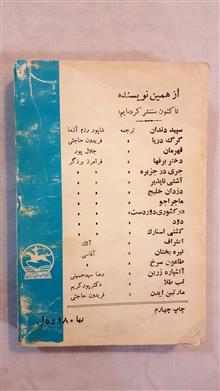 از همین نویسنده
تاکنون منتشر کرده‌ایم:
سپید دندان ترجمه شاپور رزم آزما
گرگ دریا » فریدون حاجتی
قهرمان » جلال پور
دختر برفها » فرامرز برزگر
جری در جزیره » »
آشتی ناپذیر » »
دزدان خلیج » »
ماجراجو » »
در کشوری دوردست » »
رود » »
کشتی اسنارک » »
اعتراف »
تیره بختان » آقاسی
طاعون سرخ » »
آتشپاره زرین » رضا سیدحسینی
تب طلا » دکتر پور کریم
مارتین ایدن » فریدون حاجتی
چاپ چهارم
بها ۹۸۰ ریال